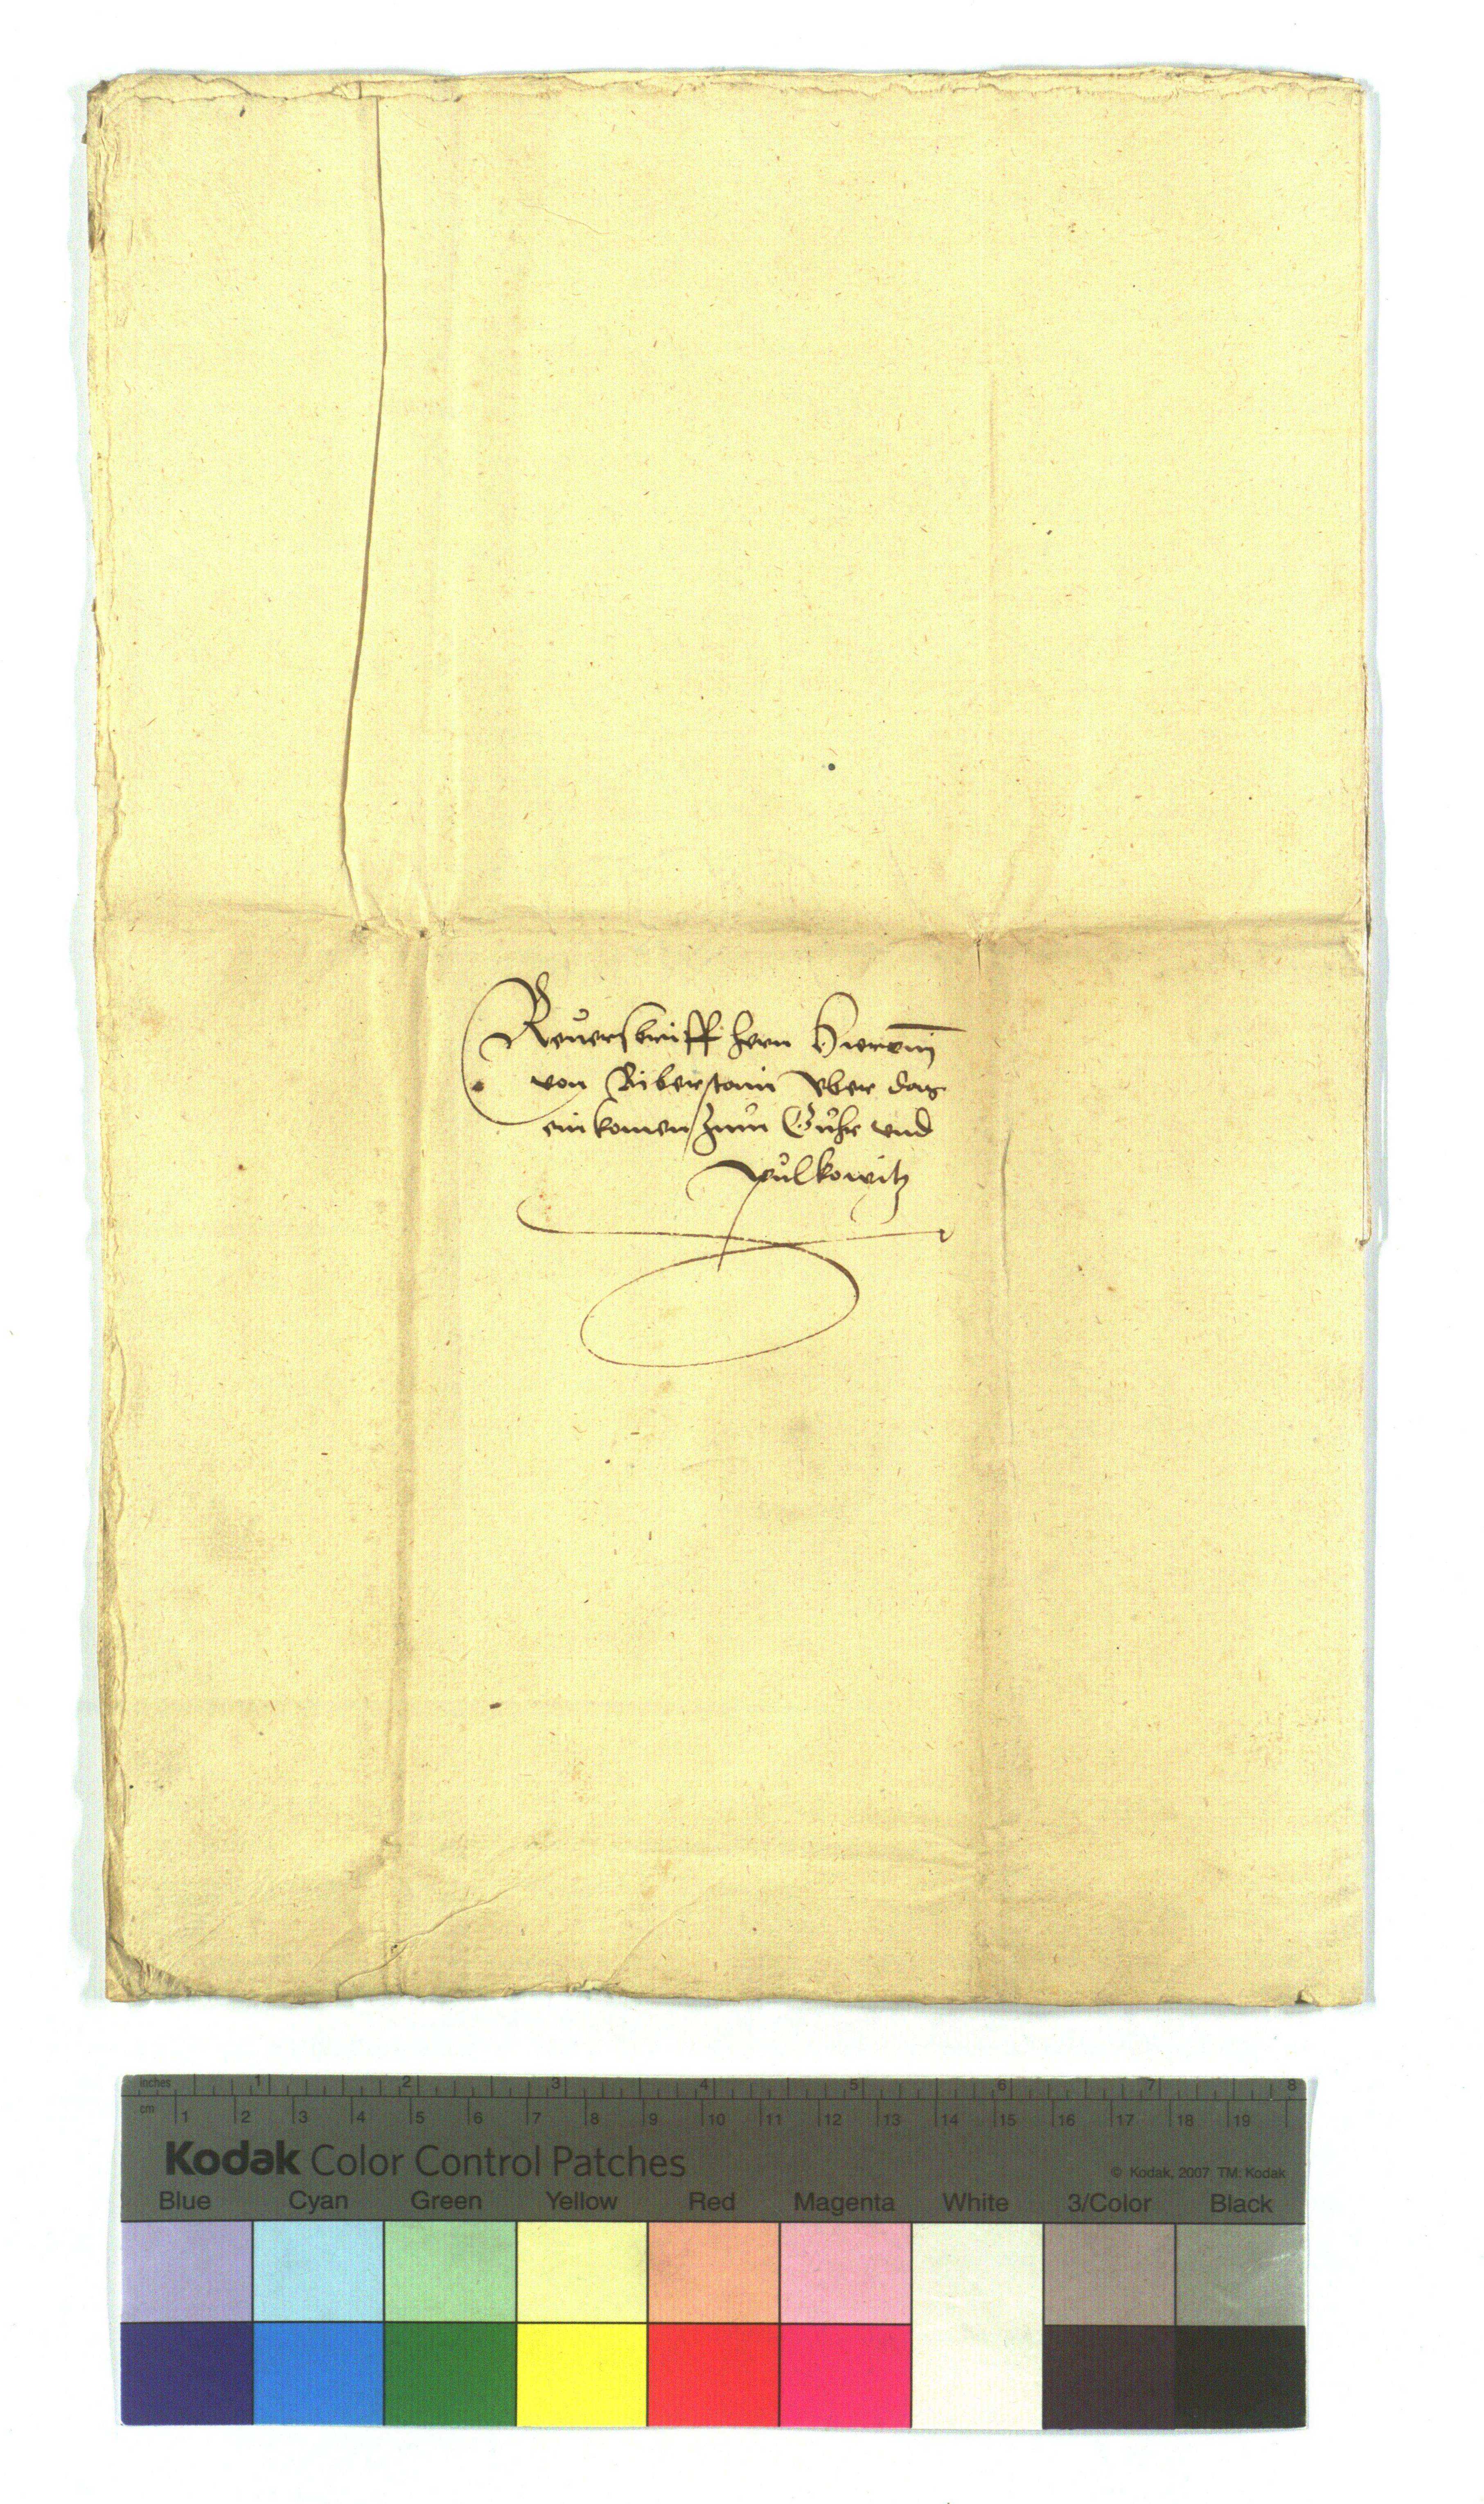 Reuersbrieff hern Hieronimj
von Biberstein vber das
einkomen zum Guhr vnd
Pulkowitz
inches 1 2 3 4 5 6 7 8
cm 1 2 3 4 5 6 7 8 9 10 11 12 13 14 15 16 17 18 19
Kodak Color Control Patches
© Kodak, 2007 TM: Kodak
Blue Cyan Green Yellow Red Magenta White 3/Color Black